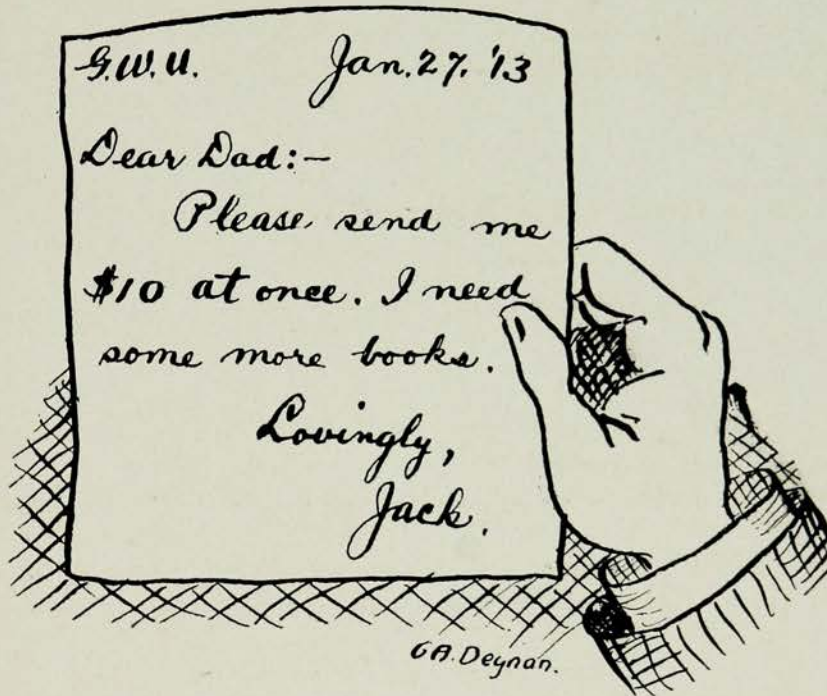 G.W.U. Jan. 27. '13
Dear Dad:-
Please send me
$10 at once. I need
some more books.
Lovingly,
Jack.
G.A. Deynan.